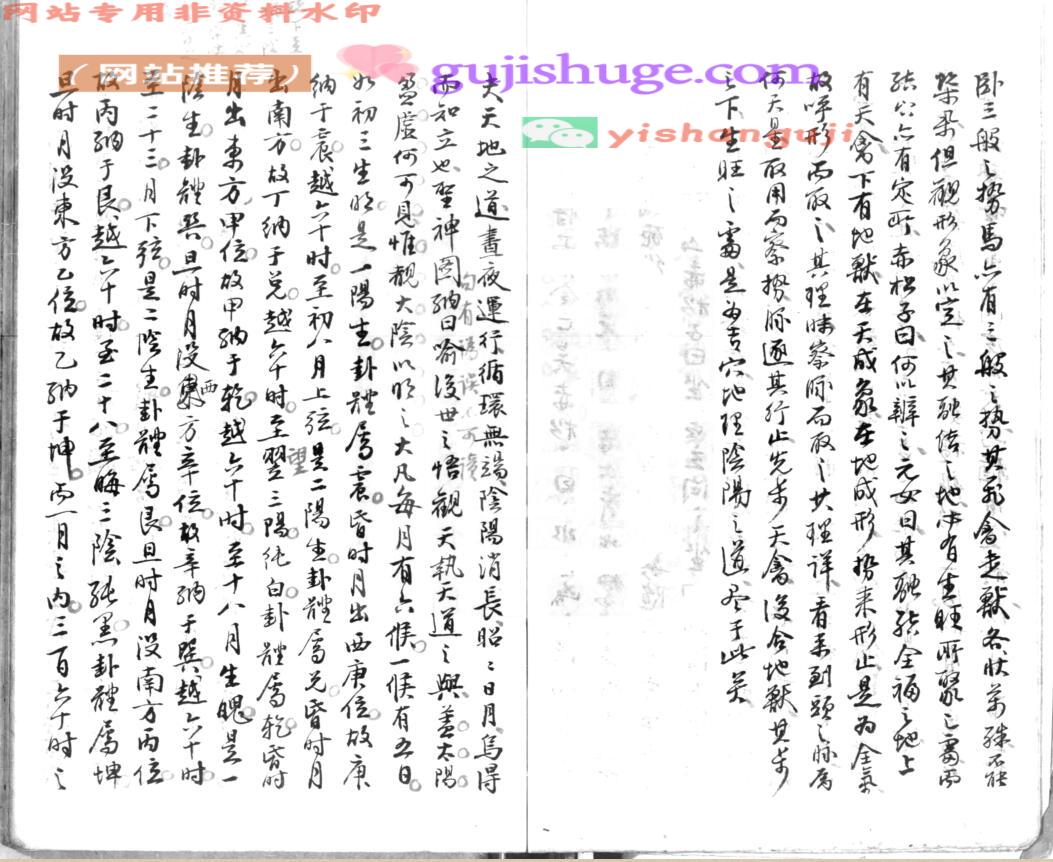 网站专用非资料水印
（网站推荐）
gujishuge.com
yishanguji
卧三般之势馬亦有三般之势其飛禽走獸各状萬殊不能
槩举但觀形象以定之其融结之地中有生旺所聚之處而
结穴亦有定所赤松子曰何以辨之元女曰其融结全福之地上
有天禽下有地獸在天成象在地成形势来形止是为全氣
故呼形而取之其理昧察脉而取之其理詳看来到頭之脉属
何天星取用而察势脉逐其行止先步天禽後合地獸其步
之下生旺之處是为吉穴地理陰陽之道尽于此矣
夫天地之道晝夜運行循環無端陰陽消長昭〻日月烏得
而知之也聖神圖納曰喻後世之悟觀天執天道之興盖太陽
盈虚何可見惟觀太陰以明之大凡每月有六候一候有五日
如初三生明是一陽生卦體属震昏时月出西庚位故庚
纳于震越六十时至初八月上弦是二陽生卦體属兑昏时月
出南方故丁纳于兑越六十时至望三陽纯白卦體属乾昏时
月出東方甲位故甲纳于乾越六十时至十八月生魄是一
陰生卦體巽旦时月没西方辛位故辛纳于巽越六十时
至二十三月下弦是二陰生卦體属艮旦时月没南方丙位
故丙纳于艮越六十时至二十八至晦三陰纯黑卦體属坤
旦时月没東方乙位故乙纳于坤而一月之内三百六十时之